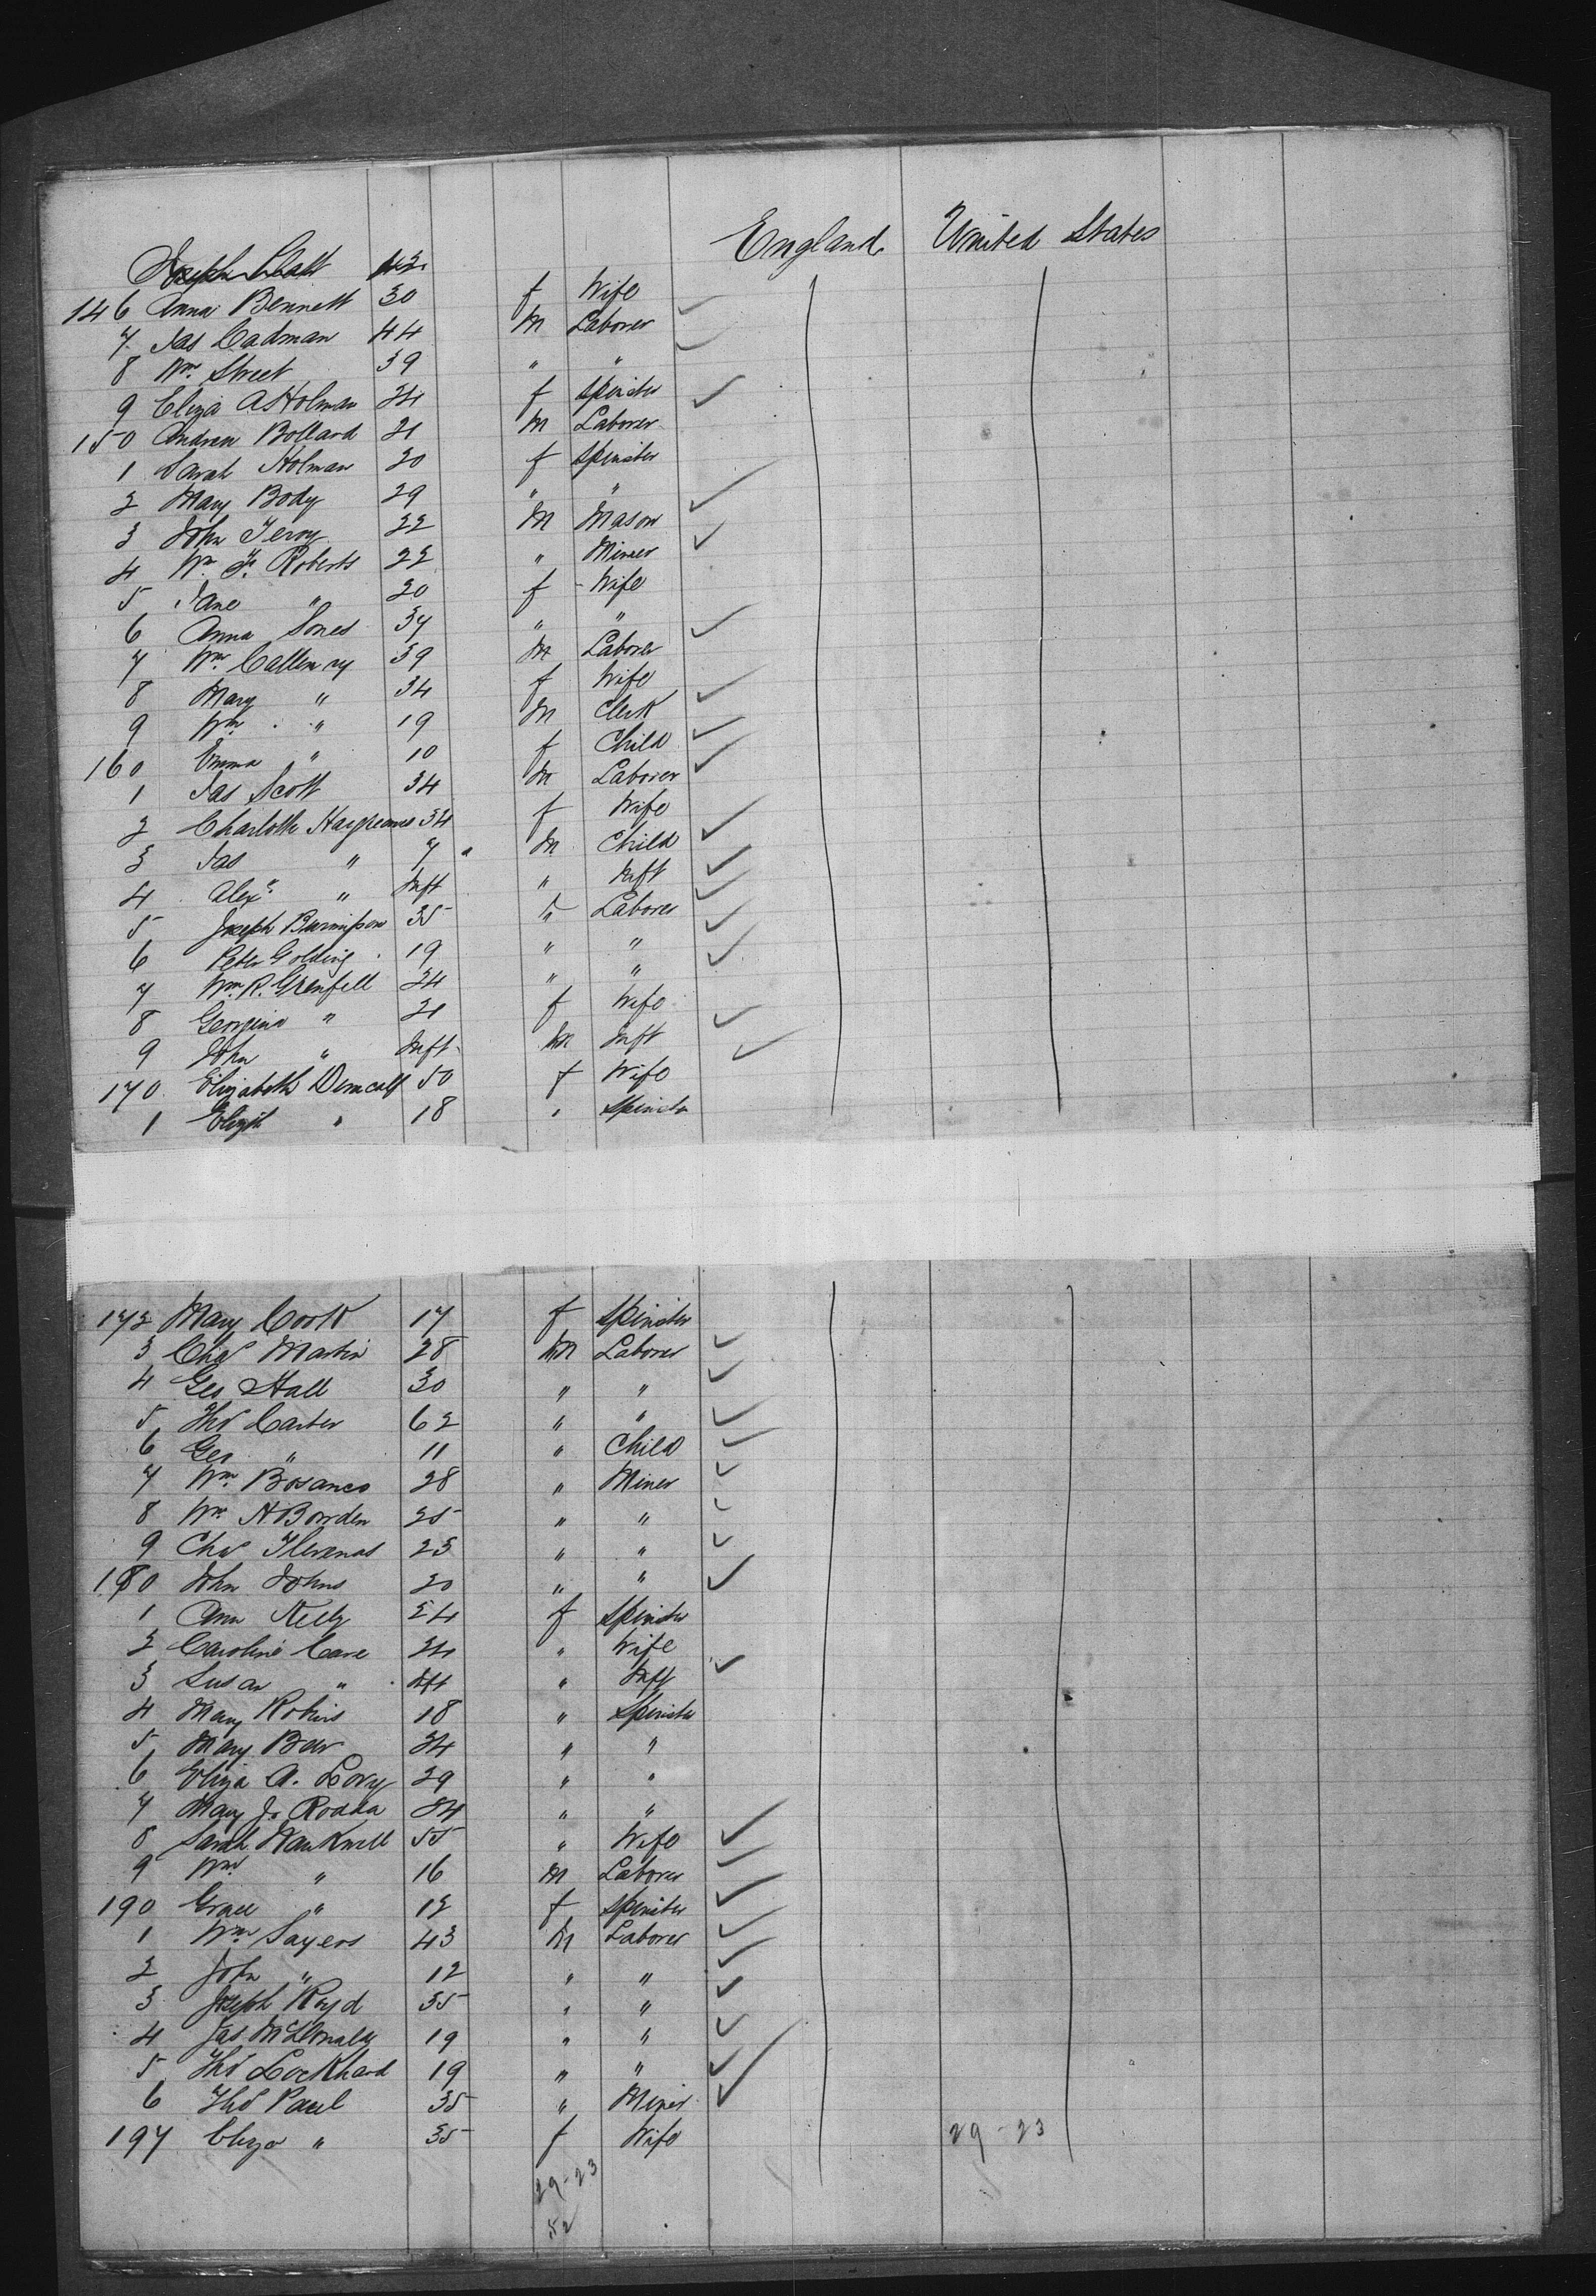 England United States
Joseph 42
146 Anna Bennett 30 f Wife
7 Jas Cadman 44 M Laborer
8 Wm. Street 39 " "
9 Eliza A Holman 24 f Spinster
150 Andrew Bollard 21 M Laborer
1 Sarah Holman 20 f Spinster
2 Mary Body 29 " "
3 John 22 M Mason
4 Wm Roberts 22 " Miner
5 Jane " 20 f Wife
6 Anna Jones 34 " "
7 Wm. 39 M Laborer
8 Mary " 34 f Wife
9 Wm " 19 M Clerk
160 Emma " 10 f Child
1 Jas Scott 34 M Laborer
2 Charlotte Hargreaves 34 f Wife
3 Jas " 7 M Child
4 Alexr " Inft " Inft
5 Joseph 35 " Laborer
6 Peter Golding 19 " "
7 Wm. R. Grenfell 24 " "
8 Georgina " 21 f Wife
9 John " Inft M Inft
170 Elizabeth 50 f Wife
1 Elizth " 18 " Spinster
172 Mary Cook 17 f Spinster
3 Chas Martin 28 M Laborer
4 Geo Hall 30 " "
5 Thos Carter 62 " "
6 Geo " 11 " Child
7 Wm. Bosanco 28 " Miner
8 Wm. H Borrden 25 " "
9 Chas 23 " "
180 John Johns 20 " "
1 Ann Kelly 24 f Spinster
2 Caroline Cave 24 " Wife
3 Susan " Inft " Inft
4 Mary Robins 18 " Spinster
5 Mary 24 " "
6 Eliza A. Lory 29 " "
7 Mary J. Rodda 24 " "
8 Sarah 55 " Wife
9 Wm. " 16 M Laborer
190 Grace " 12 f Spinster
1 Wm. Sayers 43 M Laborer
2 John " 12 " "
3 Joseph 35 " "
4 Jas McDonald 19 " "
5 Thos Lockhard 19 " "
6 Thos Paul 35 " Miner
197 Eliza " 35 f Wife 29 - 23
29 - 23
52